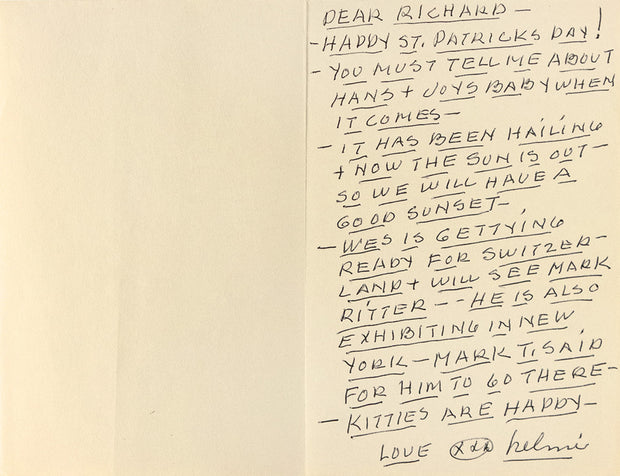 DEAR RICHARD —
– HAPPY ST. PATRICKS DAY!
– YOU MUST TELL ME ABOUT
HANS + JOYS BABY WHEN
IT COMES —
– IT HAS BEEN HAILING
+ NOW THE SUN IS OUT —
SO WE WILL HAVE A
GOOD SUNSET —
– WES IS GETTYING
READY FOR SWITZER–
LAND + WILL SEE MARK
RITTER – – HE IS ALSO
EXHIBITING IN NEW
YORK — MARK T. SAID
FOR HIM TO GO THERE —
– KITTIES ARE HAPPY —
LOVE XXX helmi